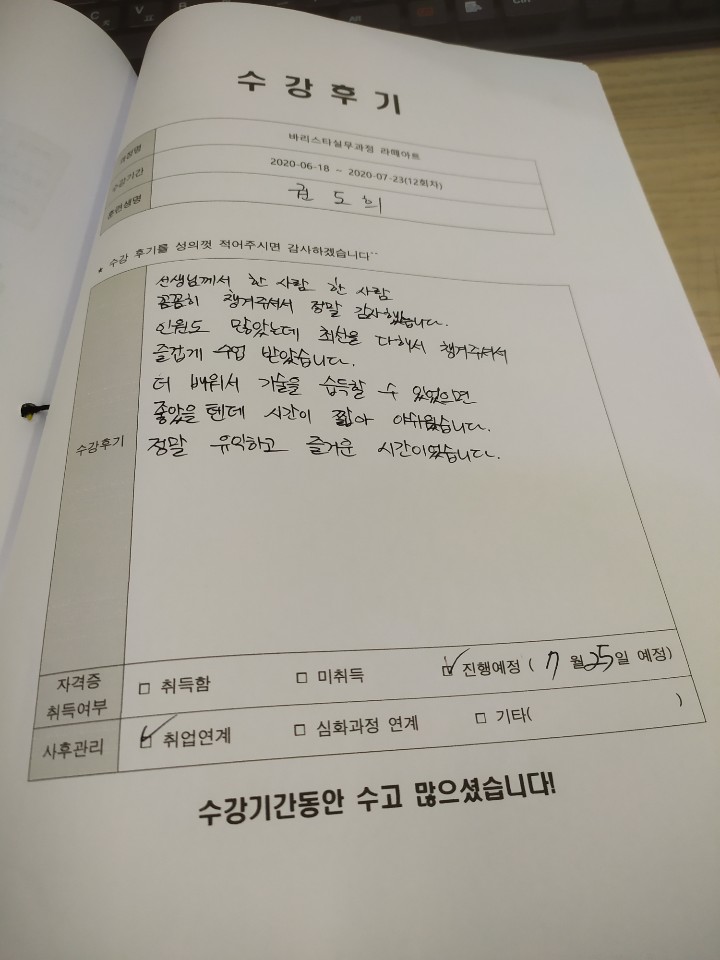 수 강 후 기
과정명 바리스타실무과정 라떼아트
수강기간 2020-06-18 ~ 2020-07-23(12회차)
훈련생명 권 도 희
* 수강 후기를 성의껏 적어주시면 감사하겠습니다^^
수강후기
선생님께서 한 사람 한 사람
꼼꼼히 챙겨주셔서 정말 감사했습니다.
인원도 많았는데 최선을 다해서 챙겨주셔서
즐겁게 수업 받았습니다.
더 배워서 기술을 습득할 수 있었으면
좋았을 텐데 시간이 짧아 아쉬웠습니다.
정말 유익하고 즐거운 시간이었습니다.
자격증
취득여부
□ 취득함 □ 미취득 ☑ 진행예정 ( 7 월 25일 예정)
사후관리 ☑ 취업연계 □ 심화과정 연계 □ 기타( )
수강기간동안 수고 많으셨습니다!